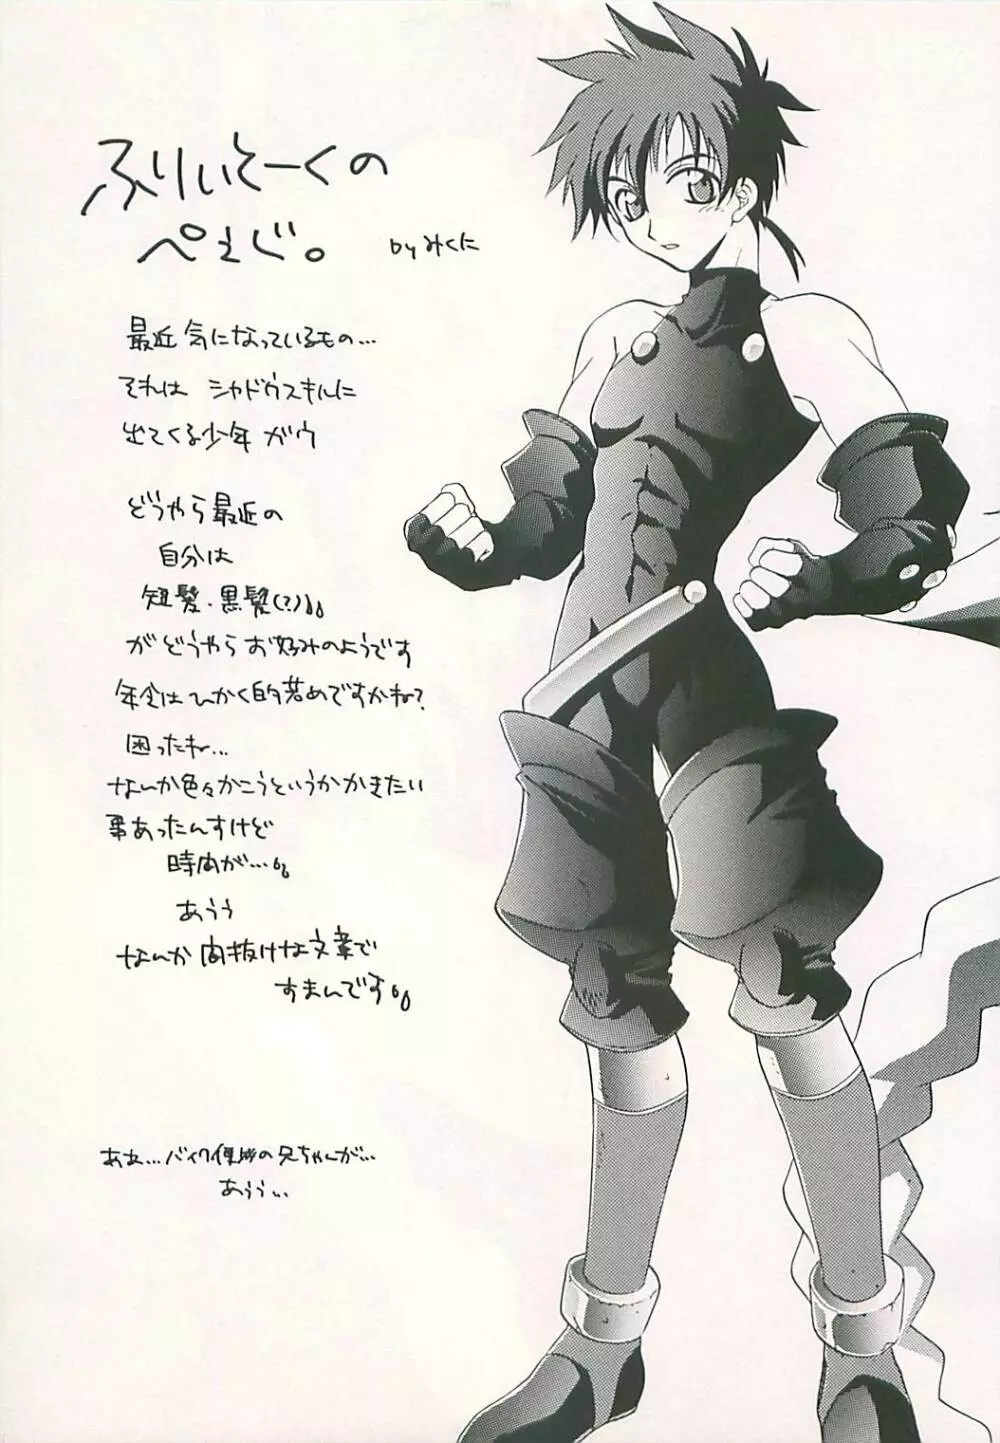 ふりぃとーくの
ぺぇじ。
by みくに
最近気になっているもの…
それは シャドウスキルに
出てくる少年 ガウ
どうやら最近の
自分は
短髪・黒髪(?)
がどうやらお好みのようです
年令はひかく的若めですかね?
困ったね…
なんか色々かこうというかかきたい
事あったんすけど
時間が…。
あうぅ
なんか間抜けな文章で
すまんです。
ああ…バイク便の兄ちゃんが…
あうぅ…